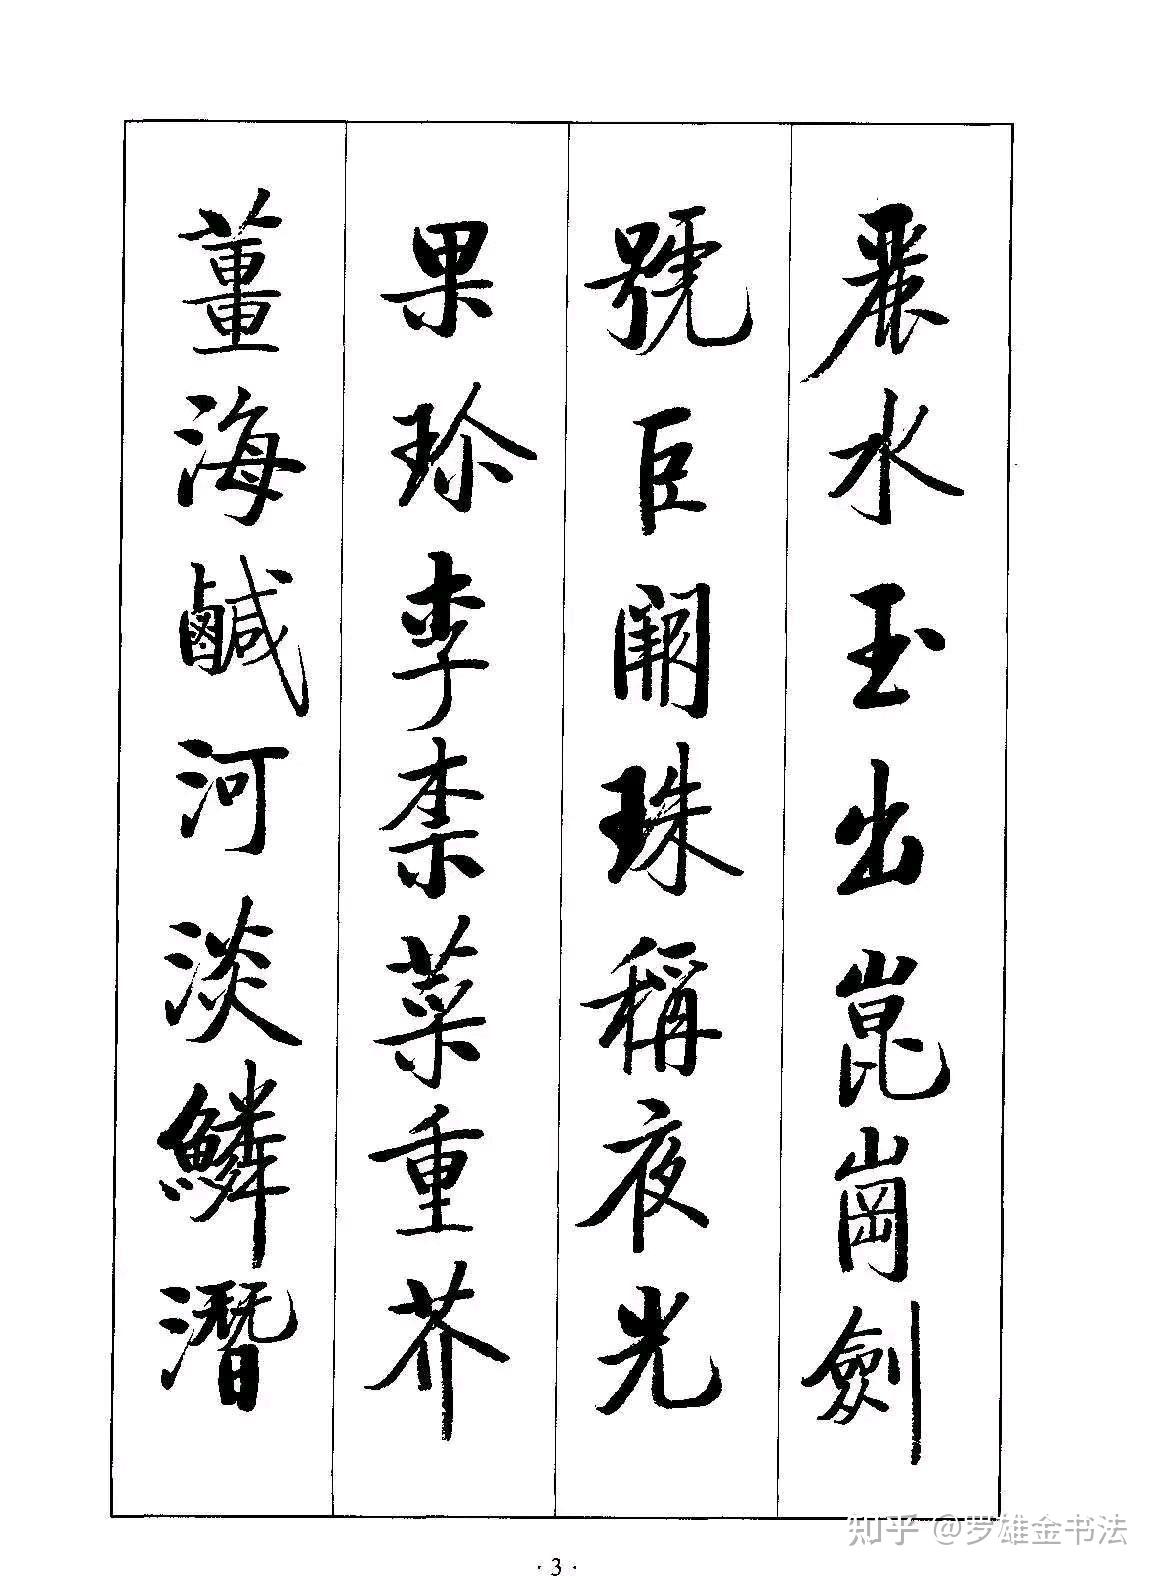 麗水玉出崑崗劍
號巨闕珠稱夜光
果珍李柰菜重芥
薑海鹹河淡鱗潛
知乎 @罗雄金书法
·3·